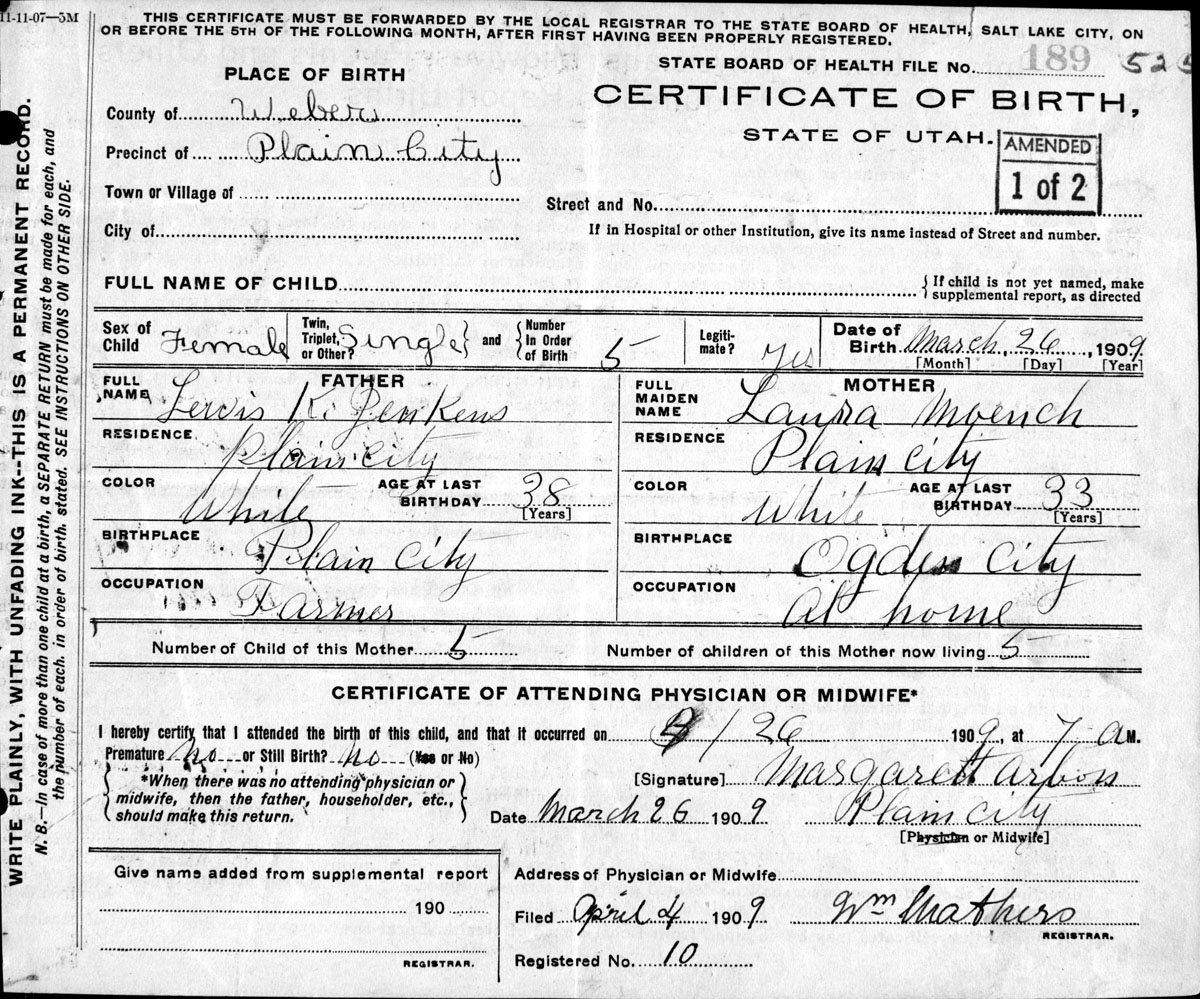 11-11-07—5M
THIS CERTIFICATE MUST BE FORWARDED BY THE LOCAL REGISTRAR TO THE STATE BOARD OF HEALTH, SALT LAKE CITY, ON
OR BEFORE THE 5TH OF THE FOLLOWING MONTH, AFTER FIRST HAVING BEEN PROPERLY REGISTERED.
STATE BOARD OF HEALTH FILE No. 189 525
PLACE OF BIRTH
CERTIFICATE OF BIRTH,
STATE OF UTAH.
AMENDED
1 of 2
County of Weber
Precinct of Plain City
Town or Village of
Street and No.
City of
If in Hospital or other Institution, give its name instead of Street and number.
FULL NAME OF CHILD
{ If child is not yet named, make
supplemental report, as directed
Sex of Child Female
Twin, Triplet, or Other? Single } and { Number In Order of Birth 5
Legiti-mate? Yes
Date of Birth March 26, 1909
[Month] [Day] [Year]
FATHER
FULL NAME Lewis K. Jenkens
RESIDENCE Plain City
COLOR White
AGE AT LAST BIRTHDAY 38
[Years]
BIRTHPLACE Plain City
OCCUPATION Farmer
MOTHER
FULL MAIDEN NAME Laura Moench
RESIDENCE Plain City
COLOR White
AGE AT LAST BIRTHDAY 33
[Years]
BIRTHPLACE Ogden City
OCCUPATION At home
Number of Child of this Mother 5
Number of children of this Mother now living 5
CERTIFICATE OF ATTENDING PHYSICIAN OR MIDWIFE*
I hereby certify that I attended the birth of this child, and that it occurred on 3/26 1909, at 7 a M.
Premature no or Still Birth? no (Yes or No)
{ *When there was no attending physician or
midwife, then the father, householder, etc.,
should make this return. }
[Signature] Margarett Arbon
Date March 26 1909 Plain City
[Physician or Midwife]
Give name added from supplemental report
190
REGISTRAR.
Address of Physician or Midwife
Filed April 4 1909 Wm Mathers
REGISTRAR.
Registered No. 10
WRITE PLAINLY, WITH UNFADING INK--THIS IS A PERMANENT RECORD.
N. B.—In case of more than one child at a birth, a SEPARATE RETURN must be made for each, and
the number of each, in order of birth, stated. SEE INSTRUCTIONS ON OTHER SIDE.